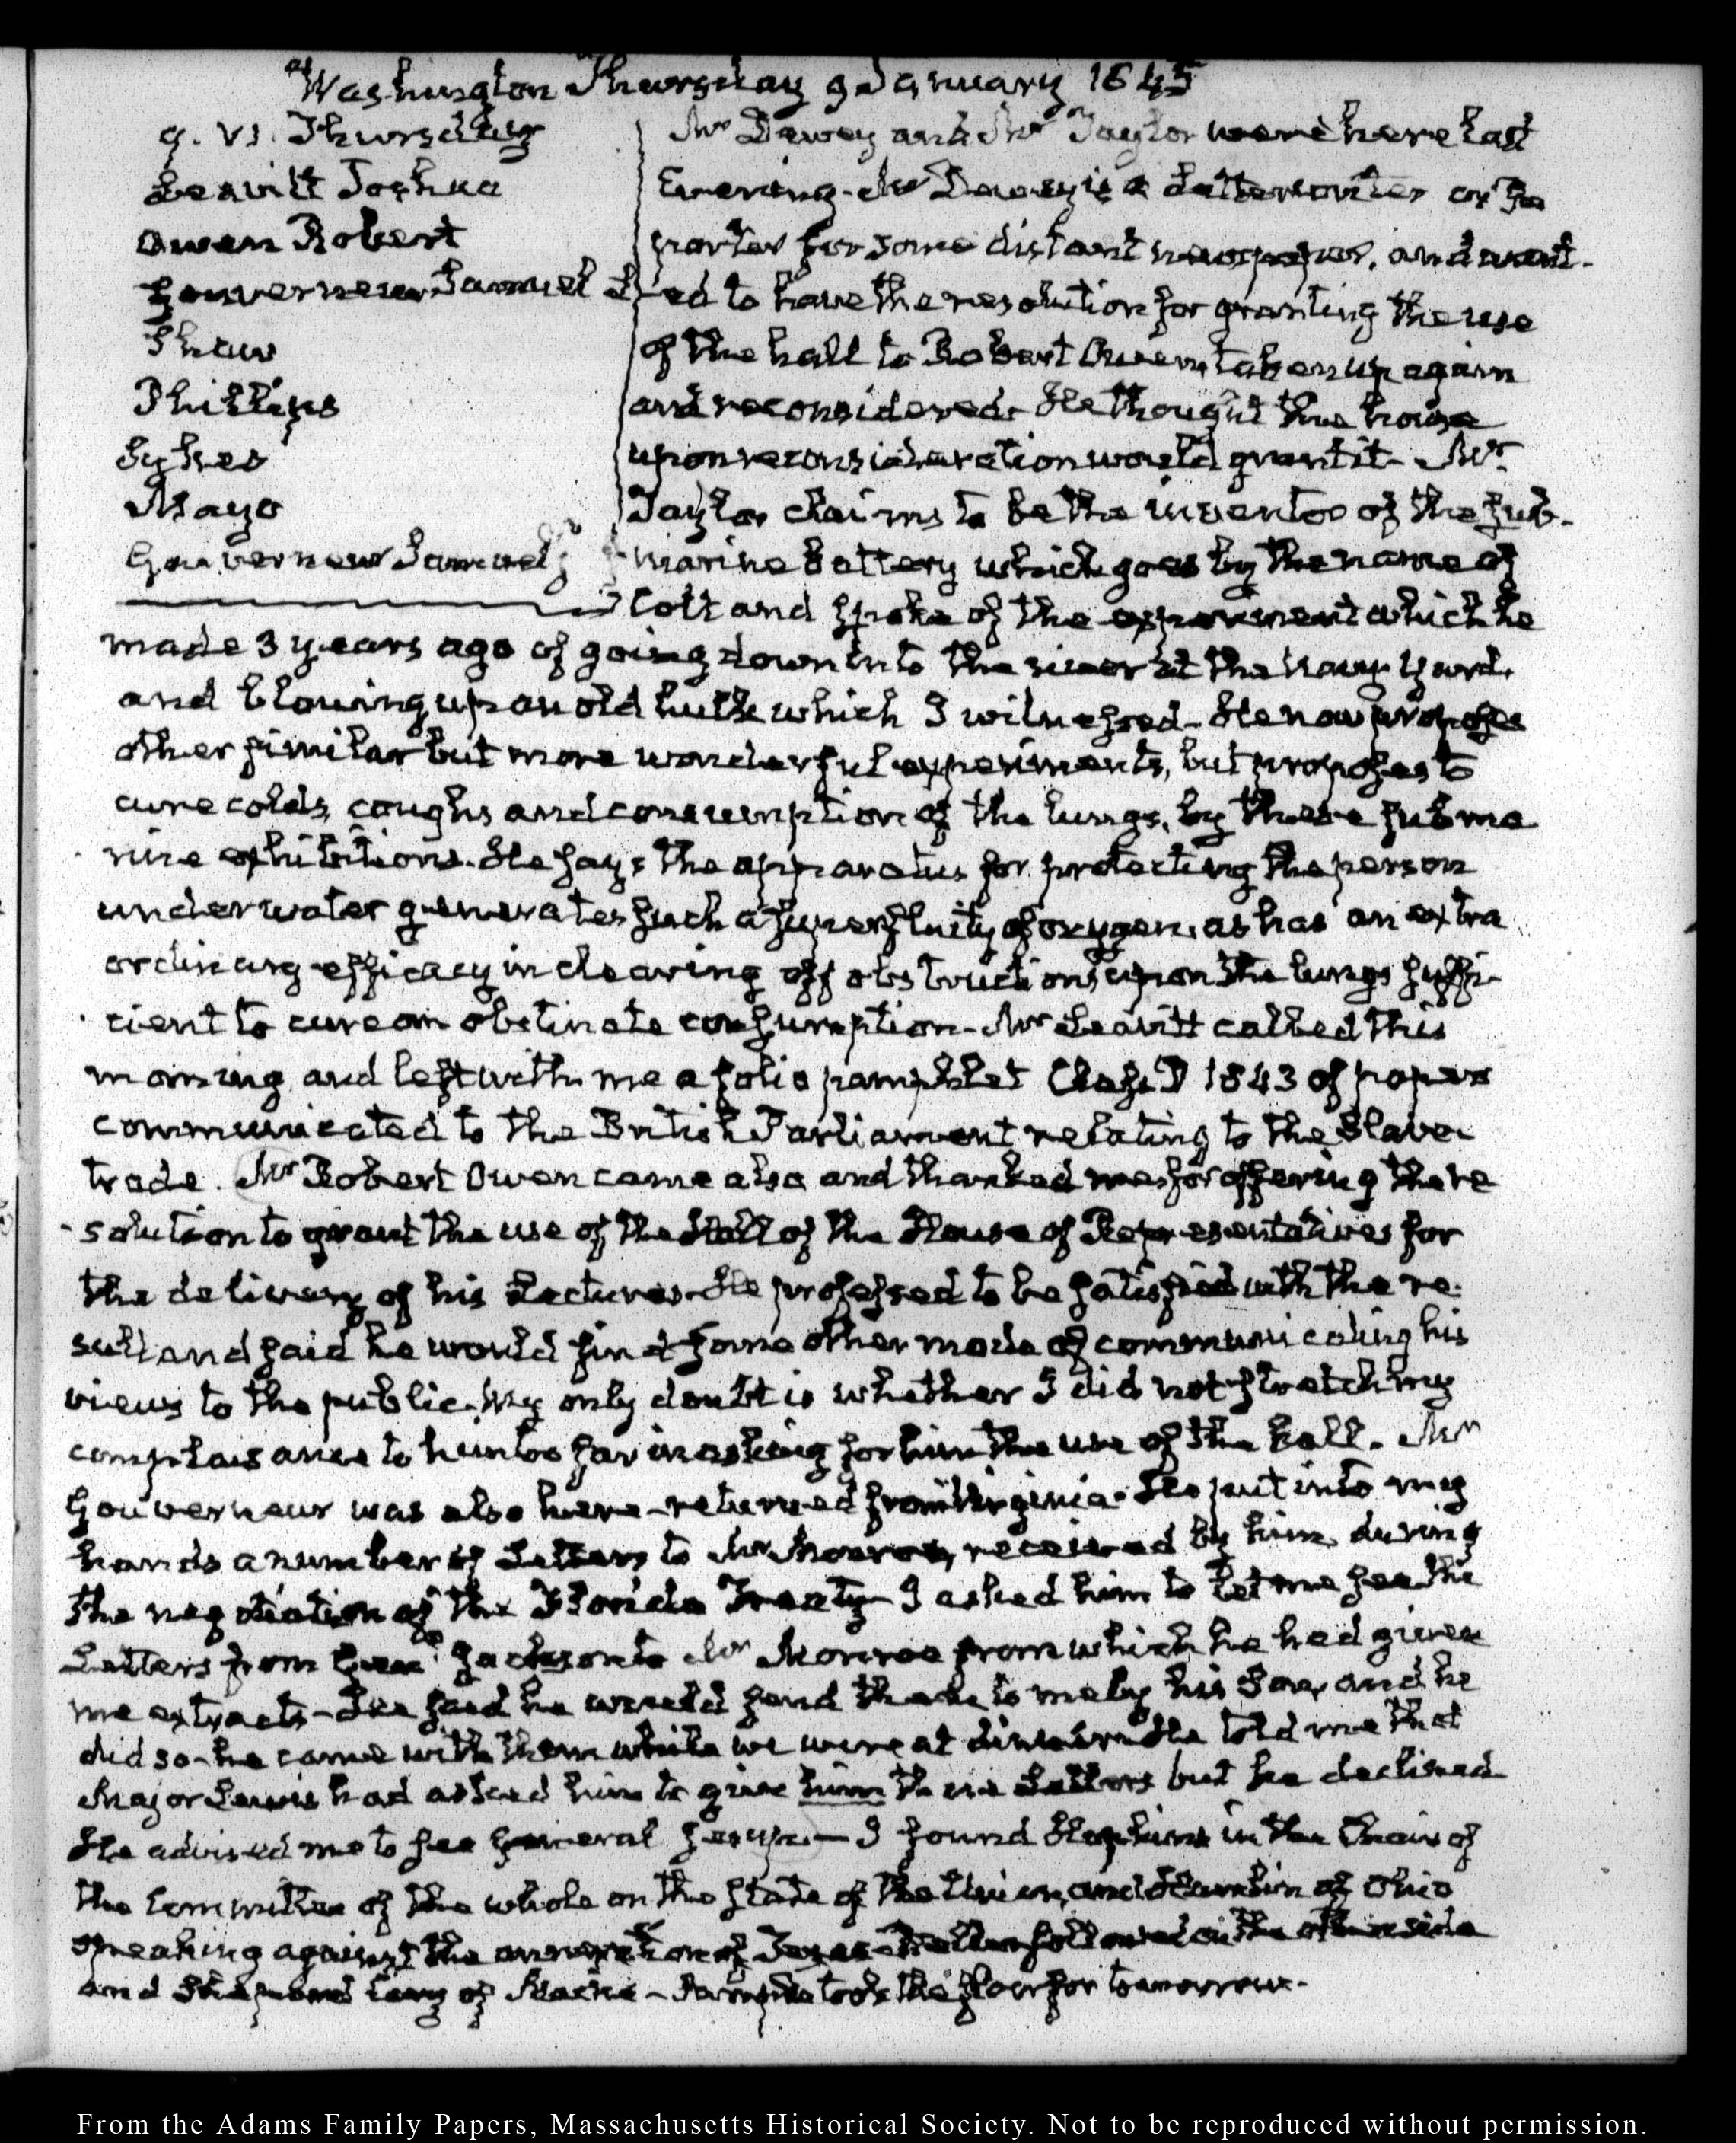 Washington Thursday 9 January 1845
9. VI. Thursday
Leavitt Joshua
Owen Robert
Gouverneur Samuel L
Shaw
Phillips
Sykes
Mayo
Gouverneur Samuel
Mr Dewey and Mr Taylor were here last
Evening. Mr Dewey is a Letterwriter or Re
porter for some distant newspaper, and want-
ed to have the resolution for granting the use
of the hall to Robert Owen, taken up again
and reconsidered. He thought the house
upon reconsideration would grant it. Mr
Taylor claims to be the inventor of the sub-
marine battery which goes by the name of
Colt and spoke of the experiment which he
made 3 years ago of going down into the river at the Navy Yard,
and blowing up an old hulk which I witnessed. He now proposes
other similar but more wonderful experiments, but proposes to
cure colds, coughs and consumption of the lungs, by these subma
rine exhibitions. He says the apparatus for protecting the person
under water generates such a superfluity of oxygen, as has an extra
ordinary efficacy in clearing off obstructions upon the lungs suffi-
cient to cure an obstinate consumption. Mr Leavitt called this
morning and left with me a folio pamphlet Class D 1843 of papers
communicated to the British Parliament relating to the Slave
trade. Mr Robert Owen came also and thanked me for offering the re
solution to grant the use of the Hall of the House of Representatives for
the delivery of his Lectures. He professed to be satisfied with the re-
sult and said he would find some other mode of communicating his
views to the public. My only doubt is whether I did not stretch my
complaisance to him too far in asking for him the use of the hall. Mr
Gouverneur was also here - returned from Virginia. He put into my
hands a number of Letters to Mr Monroe, received by him, during
the negotiation of the Florida Treaty - I asked him to let me see the
Letters from Genl Jackson to Mr Monroe from which he had given
me extracts - He said he would send them to me by his Son, and he
did so - he came with them while we were at dinner. He told me that
Major Lewis had asked him to give him these Letters but he declined
He advised me to see General Jesup - I found Hopkins in the Chair of
the Committee of the whole on the state of the Union, and of Ohio
speaking against the annexation of Texas - followed on the other side
and Shepard Cary of Maine - took the floor for tomorrow.
From the Adams Family Papers, Massachusetts Historical Society. Not to be reproduced without permission.